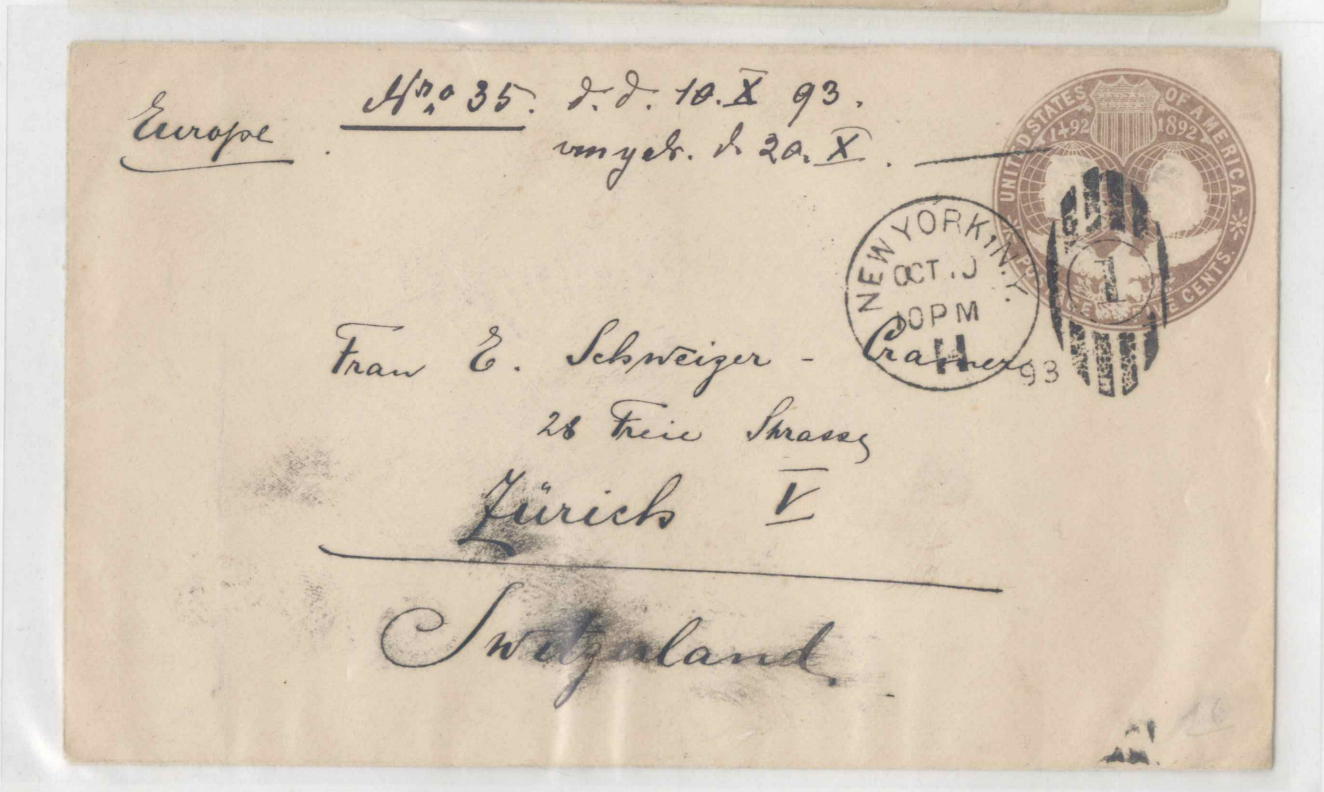 Europe
Nro 35. d. d. 10. X 93.
d. 20. X.
UNITED STATES OF AMERICA
1492 1892
CENTS.
NEW YORK, N.Y.
OCT 10
10 PM
H
93
1
Frau E. Schweizer - Cramer
28 Freie Strasse
Zürich V
Switzerland
16